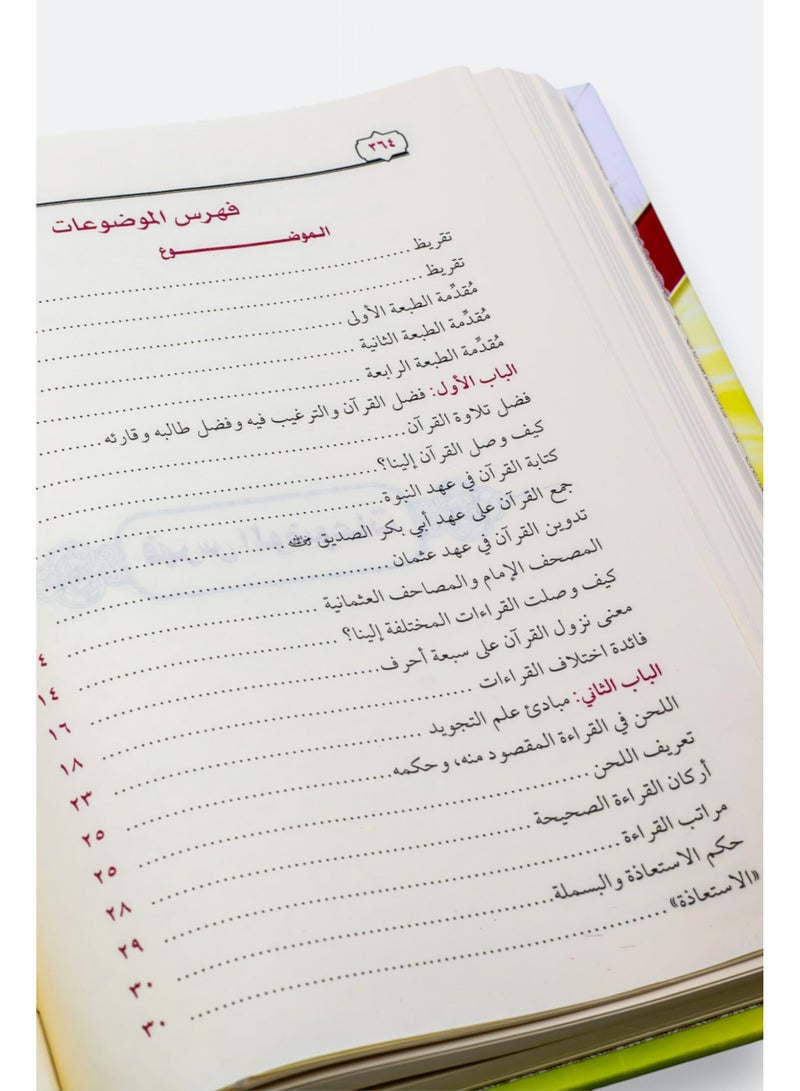 ٣٦٤
فهرس الموضوعات
الموضـــــــــوع
تقريظ
تقريظ
مُقدِّمة الطبعة الأولى
مُقدِّمة الطبعة الثانية
مُقدِّمة الطبعة الرابعة
الباب الأول: فضل القرآن والترغيب فيه وفضل طالبه وقارئه
فضل تلاوة القرآن
كيف وصل القرآن إلينا؟
كتابة القرآن في عهد النبوة
جمع القرآن على عهد أبي بكر الصديق
تدوين القرآن في عهد عثمان
المصحف الإمام والمصاحف العثمانية
كيف وصلت القراءات المختلفة إلينا؟ ١٤
معنى نزول القرآن على سبعة أحرف ١٦
فائدة اختلاف القراءات ١٨
الباب الثاني: مبادئ علم التجويد ٢٣
اللحن في القراءة المقصود منه، وحكمه ٢٥
تعريف اللحن ٢٥
أركان القراءة الصحيحة ٢٨
مراتب القراءة ٢٩
حكم الاستعاذة والبسملة ٣٠
«الاستعاذة» ٣٠